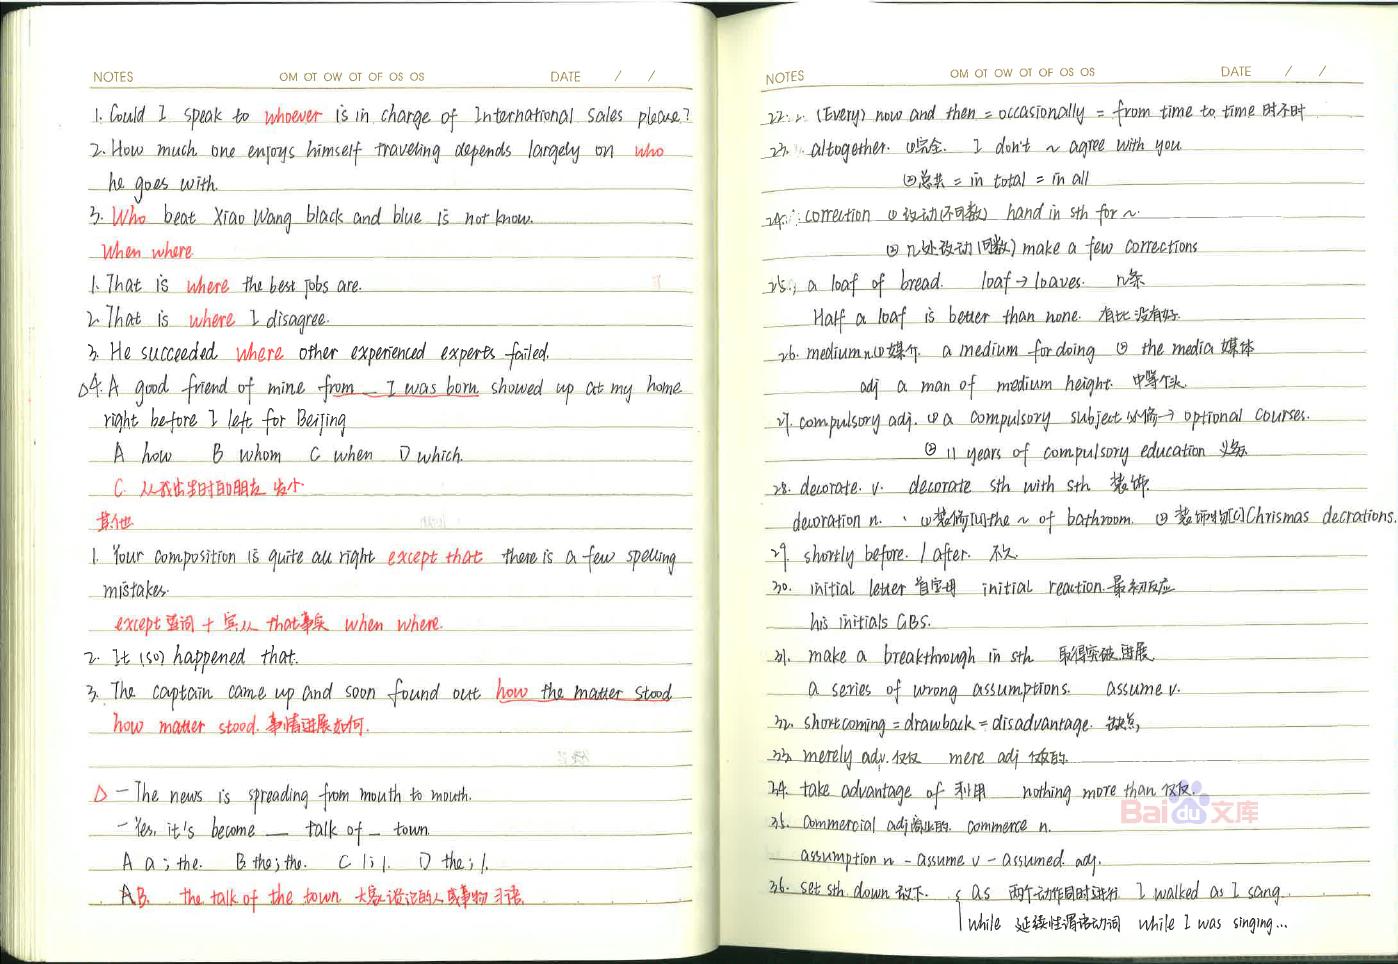 NOTES OM OT OW OT OF OS OS DATE / /
1. Could I speak to whoever is in charge of International Sales please?
2. How much one enjoys himself traveling depends largely on who
he goes with.
3. Who beat Xiao Wang black and blue is not know.
When where
1. That is where the best jobs are.
2. That is where I disagree.
3. He succeeded where other experienced experts failed.
△4. A good friend of mine from __ I was born showed up at my home
right before I left for Beijing
A how B whom C when D which.
C 从我出生时的朋友 发小
其他
1. Your composition is quite all right except that there is a few spelling
mistakes.
except 疑词 + 宾从 that事实 when where.
2. It (so) happened that.
3. The captain came up and soon found out how the matter stood
how matter stood. 事情进展如何.
△ - The news is spreading from mouth to mouth.
- Yes, it's become __ talk of _ town.
A a; the. B the; the. C /; /. D the; /.
AB. the talk of the town 大家谈论的人或事物 习语.
NOTES OM OT OW OT OF OS OS DATE / /
22. (Every) now and then = occasionally = from time to time 时不时
23. altogether. ①完全. I don't ~ agree with you
②总共 = in total = in all
24. correction ① 改动(不可数) hand in sth for ~.
② n处改动(可数) make a few corrections
25. a loaf of bread. loaf → loaves. n条
Half a loaf is better than none. 有比没有好.
26. medium n ①媒介. a medium for doing ② the media 媒体
adj a man of medium height. 中等个头
27. compulsory adj. ① a compulsory subject 必修 → optional courses.
② 11 years of compulsory education 义务
28. decorate. v. decorate sth with sth 装饰.
devoration n. ①装修[U] the ~ of bathroom. ② 装饰物[C] Chrismas decrations.
29. shortly before. / after. 不久
30. initial letter 首字母 initial reaction. 最初反应
his initials GBS.
31. make a breakthrough in sth 取得突破进展
a series of wrong assumptions. assume v.
32. shortcoming = drawback = disadvantage. 缺点,
33. merely adv. 仅仅 mere adj 仅仅的
34. take advantage of 利用 nothing more than 仅仅.
Baidu文库
35. commercial adj 商业的. commerce n.
assumption n - assume v - assumed. adj.
36. set sth down 放下. { as 两个动作同时进行 I walked as I sang.
while 延续性谓语动词 while I was singing...